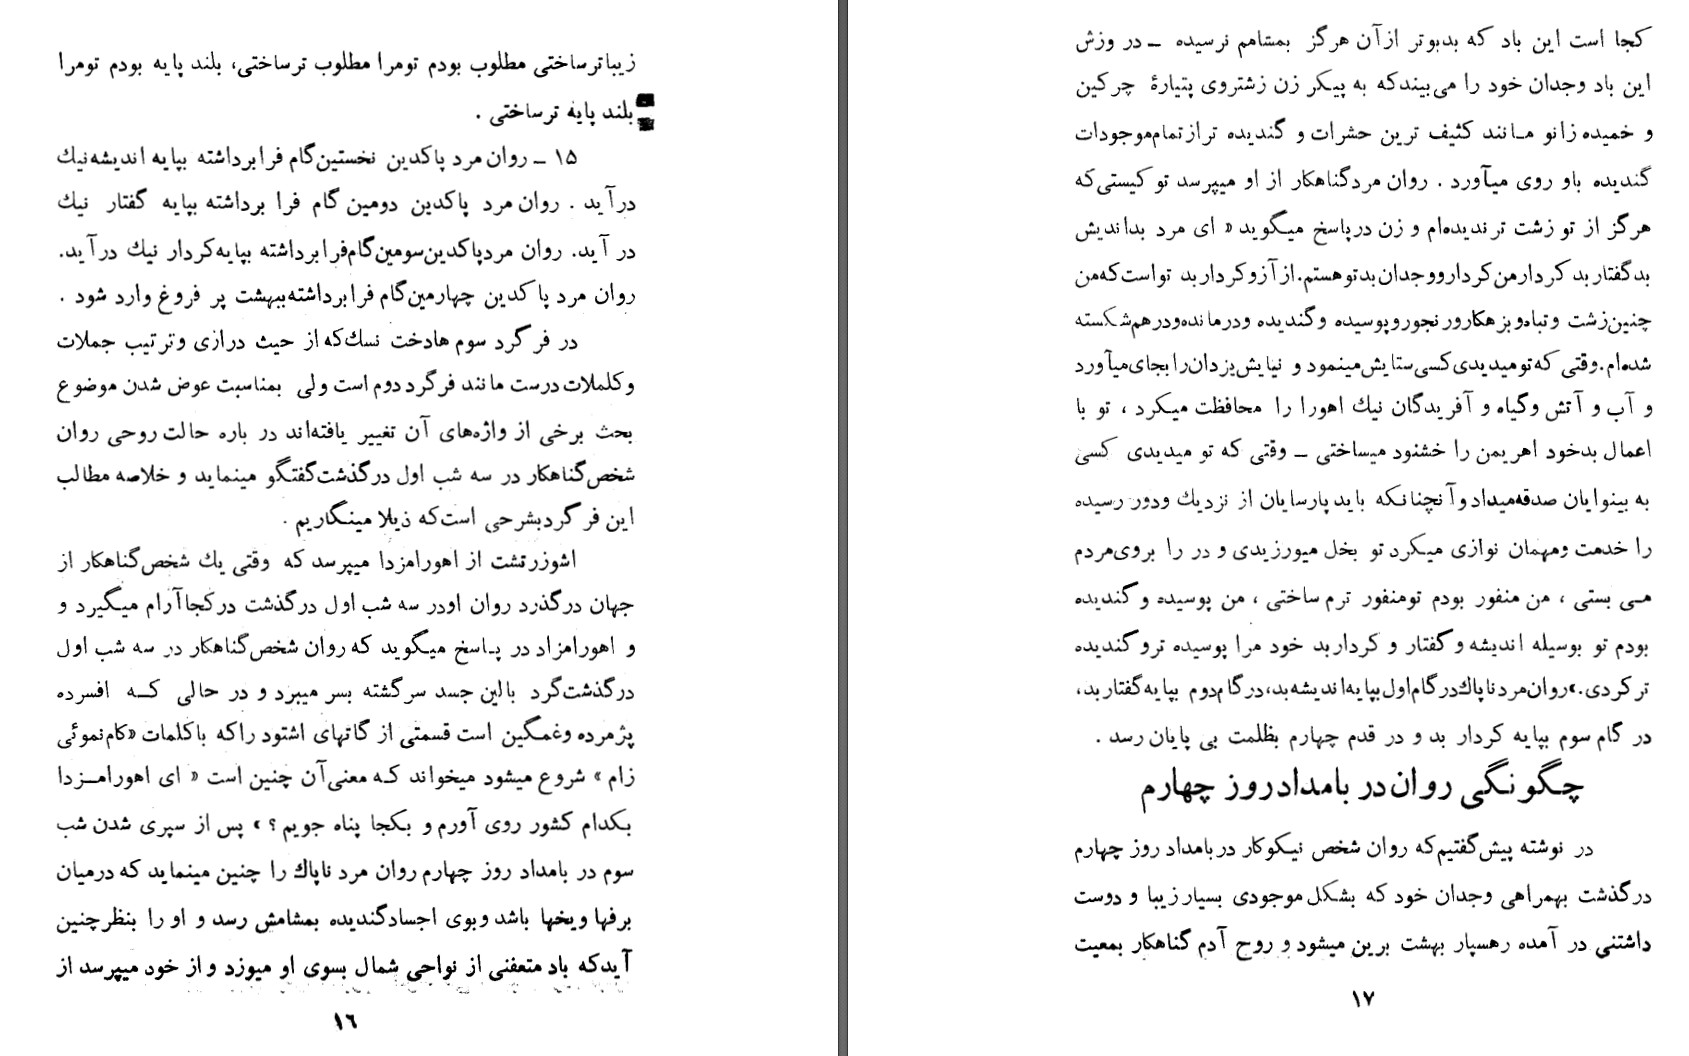 زیباترساختی مطلوب بودم تومرا مطلوب ترساختی، بلند پایه بودم تومرا
بلند پایه ترساختی .
۱۵ ــ روان مرد پاکدین نخستین گام فرا برداشته بپایه اندیشه نیك
درآید . روان مرد پاکدین دومین گام فرا برداشته بپایه گفتار نیك
در آید. روان مرد پاکدین سومین گام فرا برداشته بپایه کردار نیك درآید.
روان مرد پاکدین چهارمین گام فرا برداشته ببهشت پر فروغ وارد شود .
در فرگرد سوم هادخت نسك که از حیث درازی وترتیب جملات
وکلملات درست مانند فرگرد دوم است ولی بمناسبت عوض شدن موضوع
بحث برخی از واژه‌های آن تغییر یافته‌اند در باره حالت روحی روان
شخص گناهکار در سه شب اول درگذشت گفتگو مینماید و خلاصه مطالب
این فرگرد بشرحی است که ذیلا مینگاریم .
اشوزرتشت از اهورامزدا میپرسد که وقتی یك شخص گناهکار از
جهان درگذرد روان اودر سه شب اول درگذشت درکجا آرام میگیرد و
و اهورامزاد در پاسخ میگوید که روان شخص گناهکار در سه شب اول
درگذشت گرد بالین جسد سرگشته بسر میبرد و در حالی کـه افسرده
پژمرده وغمگین است قسمتی از گاتهای اشتود راکه باکلمات «کام نموئی
زام » شروع میشود میخواند کـه معنی آن چنین است « ای اهورامـزدا
بکدام کشور روی آورم و بکجا پناه جویم ؟ » پس از سپری شدن شب
سوم در بامداد روز چهارم روان مرد ناپاك را چنین مینماید که درمیان
برفها ویخها باشد وبوی اجسادگندیده بمشامش رسد و او را بنظر چنین
آیدکه باد متعفنی از نواحی شمال بسوی او میوزد و از خود میپرسد از
۱۶
کجا است این باد که بدبوتر ازآن هرگز بمشاهم نرسیده ــ در وزش
این باد وجدان خود را می‌بیندکه به پیکر زن زشتروی پتیارهٔ چرکین
و خمیده زانو مـانند کثیف ترین حشرات و گندیده تر از تمام موجودات
گندیده باو روی میآورد . روان مردگناهکار از او میپرسد تو کیستی که
هرگز از تو زشت تر ندیده‌ام و زن درپاسخ میگوید « ای مرد بداندیش
بدگفتار بد کردار من کردار ووجدان بد توهستم. از آز و کردار بد تواست که من
چنین زشت و تباه و بزهکار و رنجور و پوسیده و گندیده ودرمانده ودرهم شکسته
شده‌ام. وقتی که تو میدیدی کسی ستایش مینمود و نیایش یزدان را بجای میآورد
و آب و آتش وگیاه و آفریدگان نیك اهورا را محافظت میکرد ، تو با
اعمال بدخود اهریمن را خشنود میساختی ــ وقتی که تو میدیدی کسی
به بینوایان صدقه میداد وآنچنانکه باید پارسایان از نزدیك ودور رسیده
را خدمت ومهمان نوازی میکرد تو بخل میورزیدی و در را بروی مردم
مـی بستی ، من منفور بودم تومنفور ترم ساختی ، من پوسیده و گندیده
بودم تو بوسیله اندیشه و گفتار و کردار بد خود مرا پوسیده تر و گندیده
تر کردی.» روان مرد ناپاك در گام اول بپایه اندیشه بد، در گام دوم بپایه گفتار بد،
در گام سوم بپایه کردار بد و در قدم چهارم بظلمت بی پایان رسد .
چگونگی روان در بامداد روز چهارم
در نوشته پیش گفتیم که روان شخص نیکوکار در بامداد روز چهارم
درگذشت بهمراهی وجدان خود که بشکل موجودی بسیار زیبا و دوست
داشتنی در آمده رهسپار بهشت برین میشود و روح آدم گناهکار بمعیت
۱۷